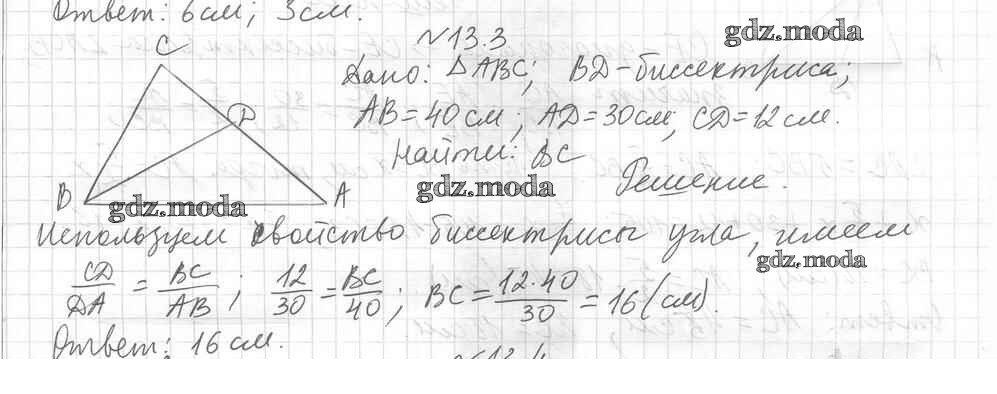 Ответ: 6 см; 3 см.
№13.3
gdz.moda
C
Дано: △ABC; BD - биссектриса;
D
AB = 40 см; AD = 30 см; CD = 12 см.
Найти: BC
gdz.moda
Решение.
B
A
gdz.moda
Используем свойство биссектрисы угла, имеем
gdz.moda
CD/DA = BC/AB; 12/30 = BC/40; BC = 12·40/30 = 16 (см).
Ответ: 16 см.
№13.4